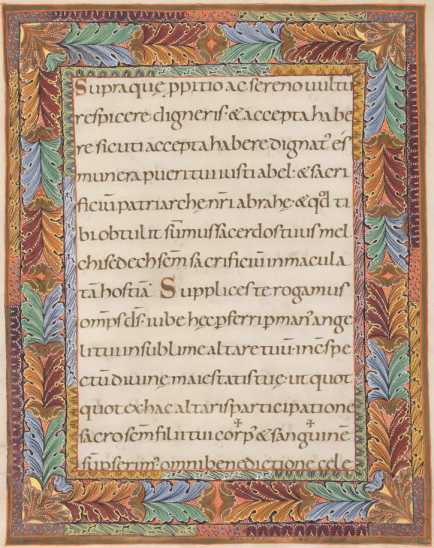 Supraquę ppitio ac sereno uultu
respicere digneris· & accepta habe
re sicuti accepta habere dignat' es
munera pueri tui iusti abel· & sacri
ficiū patriarchę nr̄i abrahę· & qđ ti
bi obtulit sūmus sacerdos tuus mel
chisedech sc̄m sacrificiū inmacula
tā hostiā· Supplices te rogamus
omp̄s d̄s· iube hęc pferri p man' ange
li tui in sublime altare tuū· in c̄spe
ctu diuinę maiestatis tuę· ut quot
quot ex hac altaris participatione
sacro sc̄m filii tui corp' & sanguinē
sūpserim' omni benedictione cęle